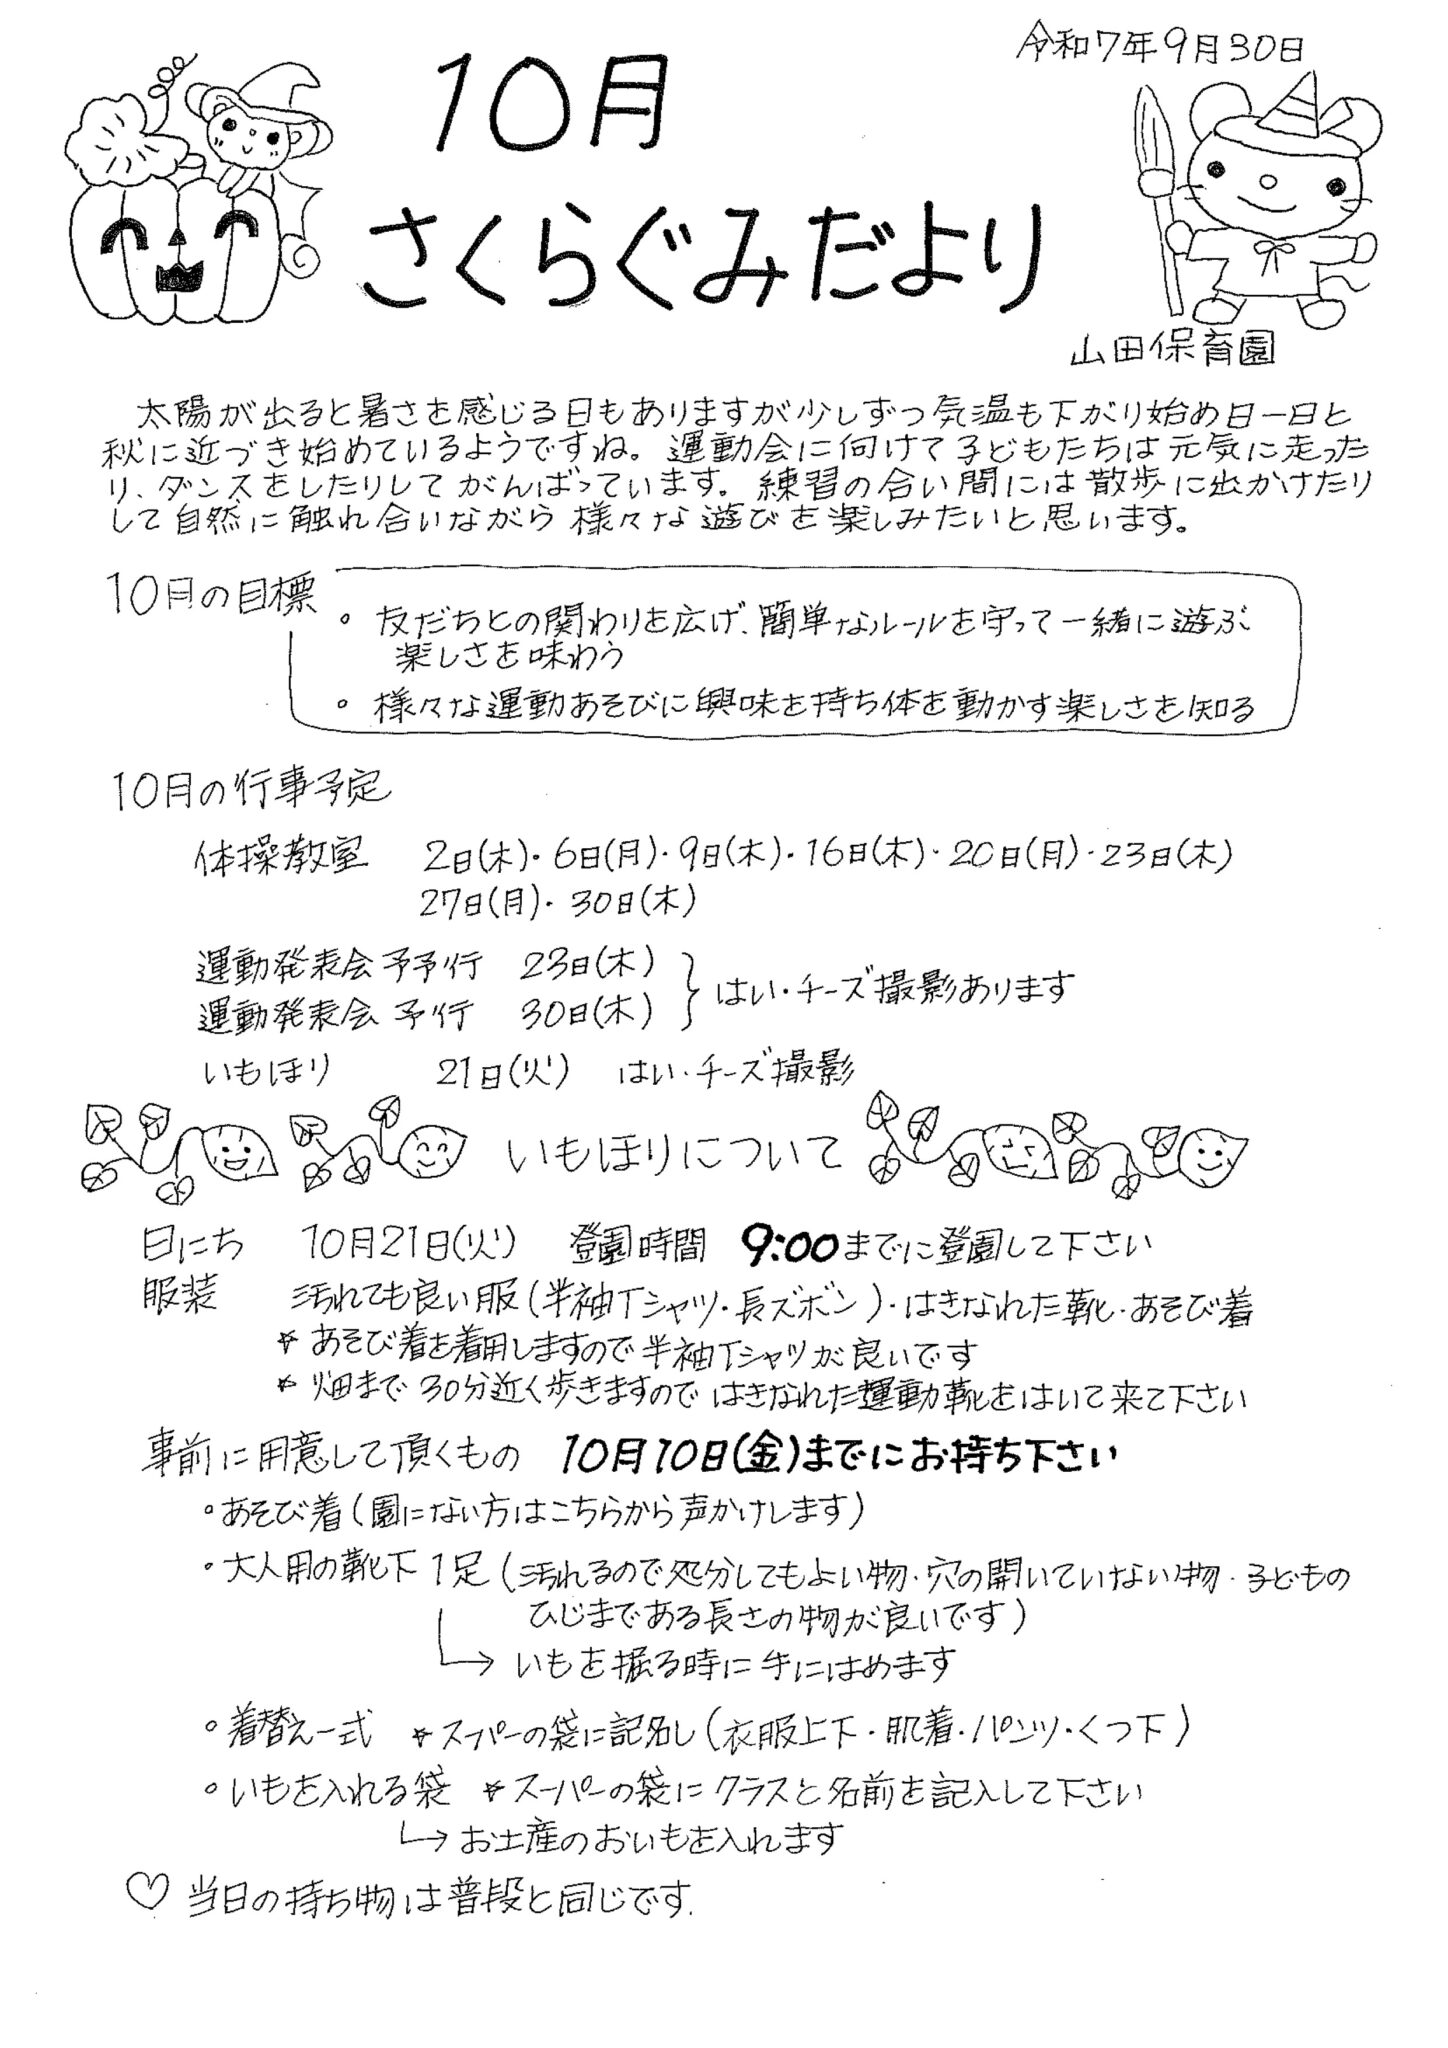 令和7年9月30日
10月
さくらぐみだより
山田保育園
太陽が出ると暑さを感じる日もありますが少しずつ気温も下がり始め日一日と
秋に近づき始めているようですね。運動会に向けて子どもたちは元気に走った
り、ダンスをしたりしてがんばっています。練習の合い間には散歩に出かけたり
して自然に触れ合いながら様々な遊びを楽しみたいと思います。
10月の目標
。友だちとの関わりを広げ、簡単なルールを守って一緒に遊ぶ
楽しさを味わう
。様々な運動あそびに興味を持ち体を動かす楽しさを知る
10月の行事予定
体操教室 2日(木)・6日(月)・9日(木)・16日(木)・20日(月)・23日(木)
27日(月)・30日(木)
運動発表会予予行 23日(木)
運動発表会 予行 30日(木)
はい・チーズ撮影あります
いもほり 21日(火) はい・チーズ撮影
いもほりについて
日にち 10月21日(火) 登園時間 9:00までに登園して下さい
服装 汚れても良い服(半袖Tシャツ・長ズボン)・はきなれた靴・あそび着
☆あそび着を着用しますので半袖Tシャツが良いです
☆畑まで30分近く歩きますのではきなれた運動靴をはいて来て下さい
事前に用意して頂くもの 10月10日(金)までにお持ち下さい
。あそび着(園にない方はこちらから声かけします)
。大人用の靴下 1足(汚れるので処分してもよい物・穴の開いていない物・子どもの
ひじまである長さの物が良いです)
→いもを掘る時に手にはめます
。着替え一式 ☆スーパーの袋に記名し(衣服上下・肌着・パンツ・くつ下)
。いもを入れる袋 ☆スーパーの袋にクラスと名前を記入して下さい
→お土産のおいもを入れます
♡当日の持ち物は普段と同じです.